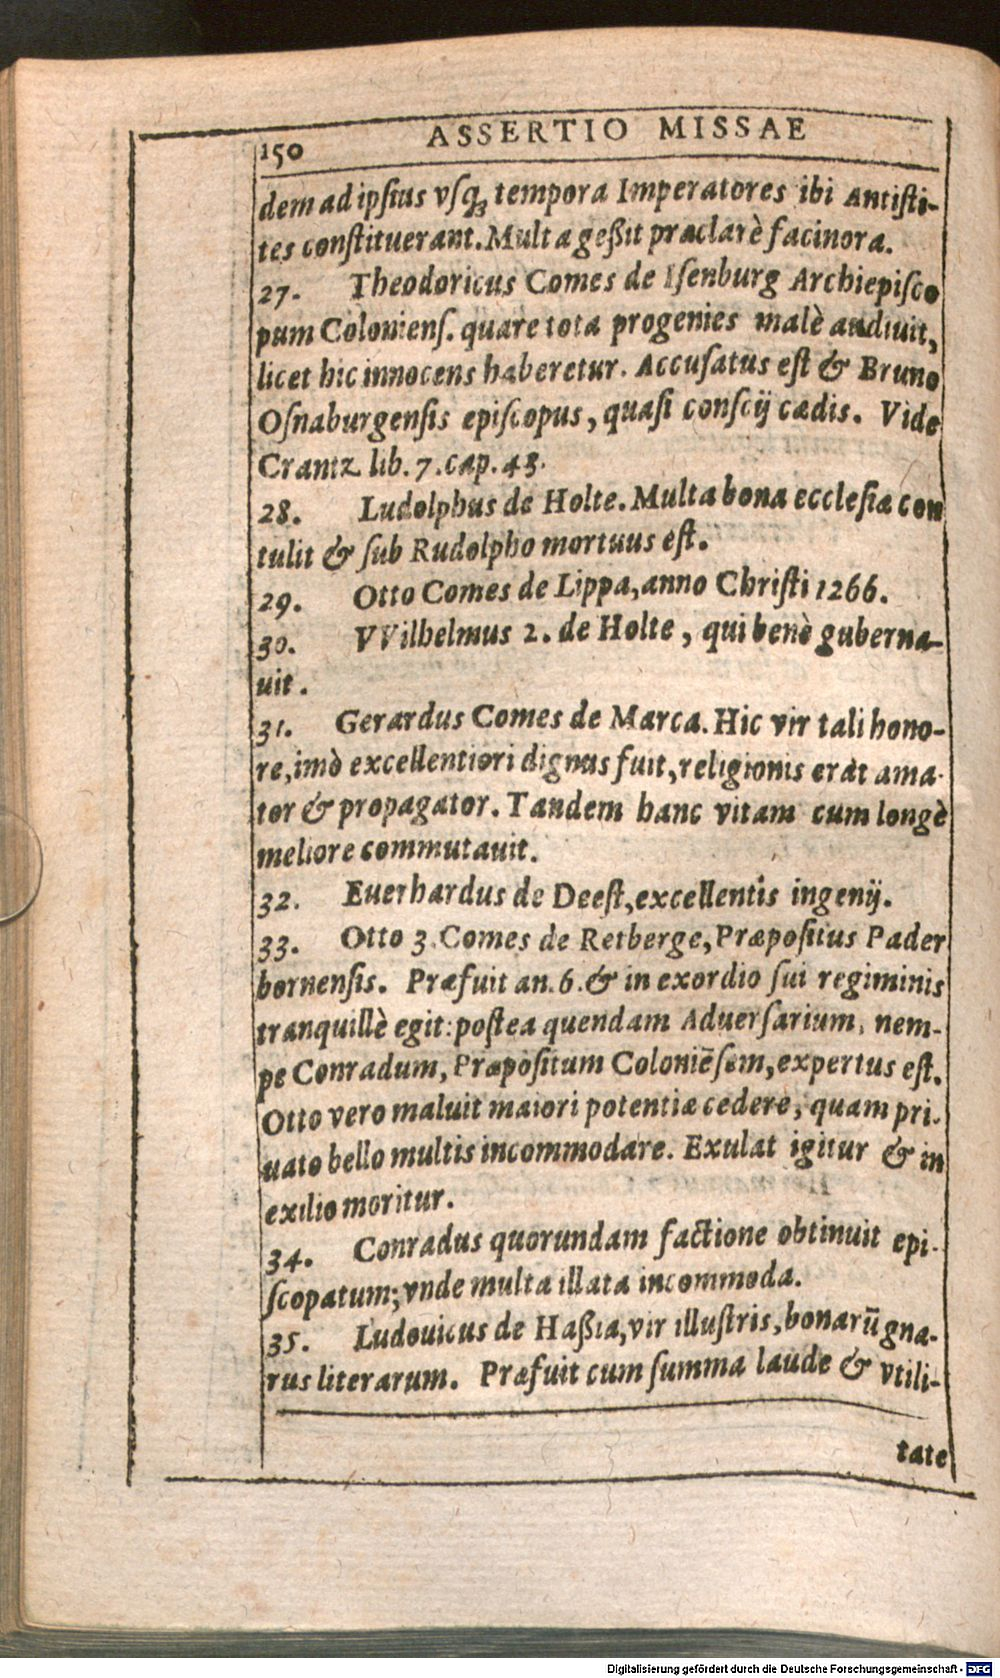 150 ASSERTIO MISSAE
dem ad ipsius vsq; tempora Imperatores ibi Antisti-
tes constituerant. Multa geßit præclarè facinora.
27. Theodoricus Comes de Isenburg Archiepisco
pum Coloniens. quare tota progenies malè audiuit,
licet hic innocens haberetur. Accusatus est & Bruno
Osnaburgensis episcopus, quasi conscij cædis. Vide
Crantz lib. 7. cap. 43.
28. Ludolphus de Holte. Multa bona ecclesiæ con
tulit & sub Rudolpho mortuus est.
29. Otto Comes de Lippa, anno Christi 1266.
30. VVilhelmus 2. de Holte, qui benè guberna-
uit.
31. Gerardus Comes de Marca. Hic vir tali hono-
re, imò excellentiori dignus fuit, religionis erat ama-
tor & propagator. Tandem hanc vitam cum longè
meliore commutauit.
32. Euerhardus de Deest, excellentis ingenij.
33. Otto 3. Comes de Retberge, Præpositus Pader
bornensis. Præfuit an. 6. & in exordio sui regiminis
tranquillè egit: postea quendam Aduersarium, nem-
pe Conradum, Præpositum Coloniēsem, expertus est.
Otto vero maluit maiori potentiæ cedere, quam pri-
uato bello multis incommodare. Exulat igitur & in
exilio moritur.
34. Conradus quorundam factione obtinuit epi-
scopatum; vnde multa illata incommoda.
35. Ludouicus de Haßia, vir illustris, bonarū gna-
rus literarum. Præfuit cum summa laude & vtili-
tate
Digitalisierung gefördert durch die Deutsche Forschungsgemeinschaft - DFG